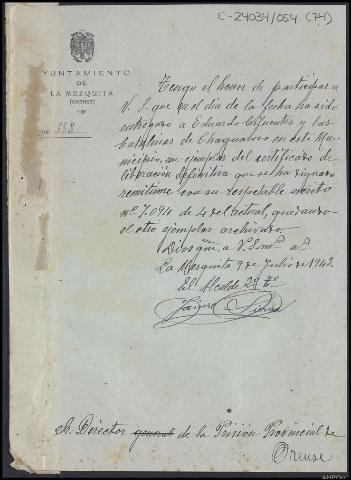 C-24034/054 (74)
AYUNTAMIENTO
DE
LA MEZQUITA
(ORENSE)
558
Tengo el honor de participar a
V. S. que en el día de la fecha ha sido
entregado a Eduardo Cifuentes y las
de Chaguatoso en este Mu-
nicipio, un ejemplar del certificado de
liberación definitiva que se ha dignado
remitirme con su respetable escrito
nº 7.094 de 4 del actual, quedando
el otro ejemplar archivado.
Dios gue. a V.S. ms. as.
La Mezquita 9 de Julio de 1943.
El Alcalde 2º Tº
Sr. Director general de la Prisión Provincial de
Orense